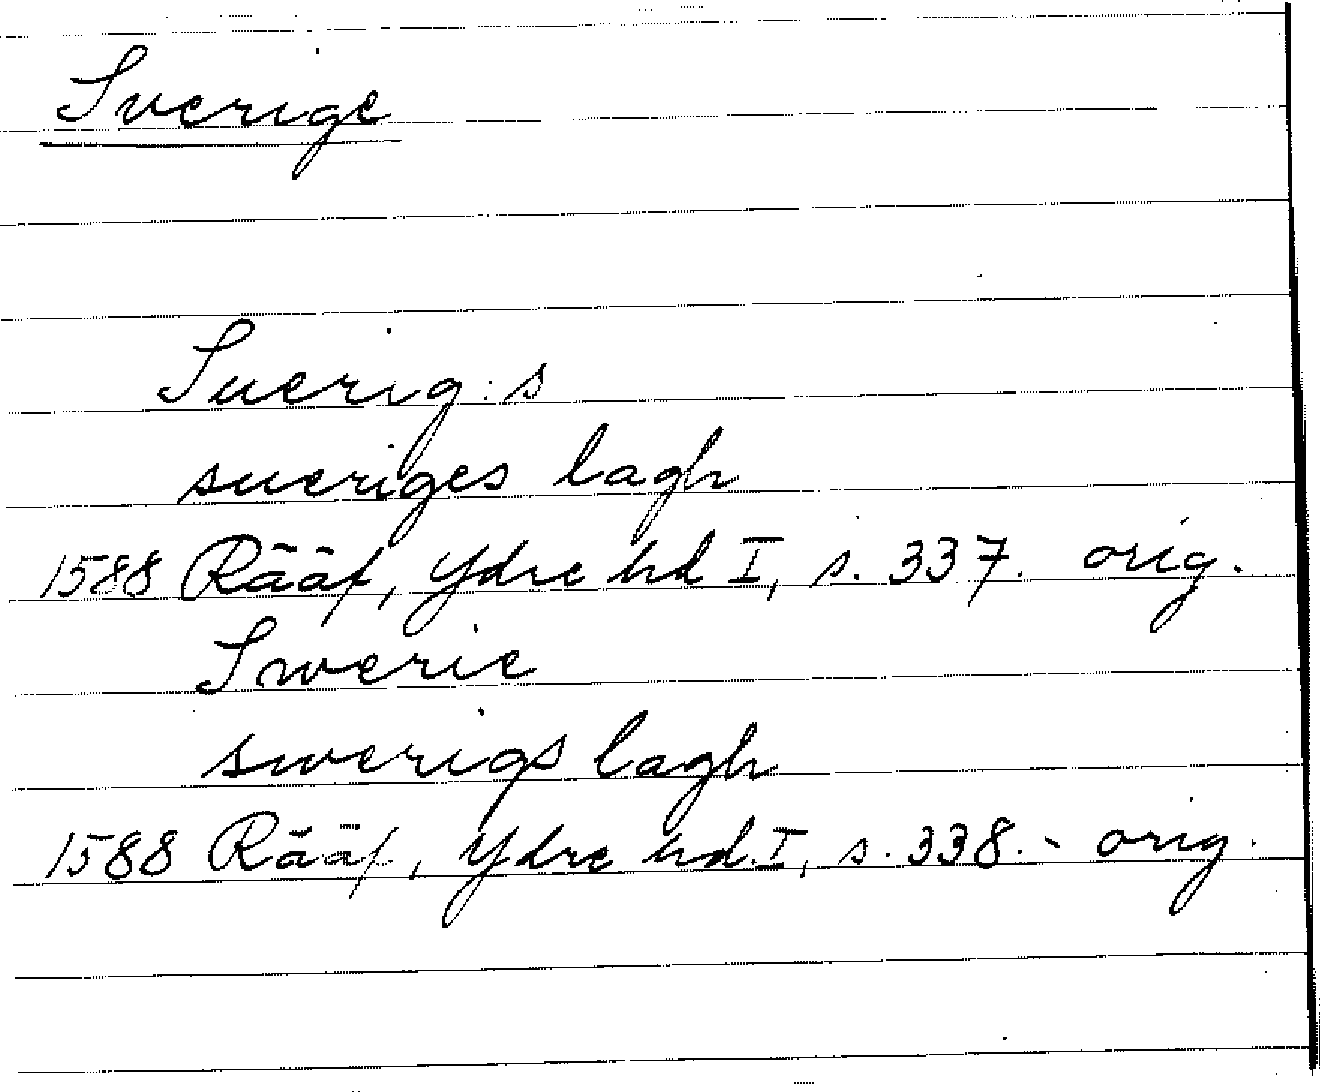 Sverige
Suerig:s
sueriges lagh
1588 Rääf, Ydre hd I, s. 337. orig.
Swerie
swerigs lagh
1588 Rääf, Ydre hd. I, s. 338. - orig.